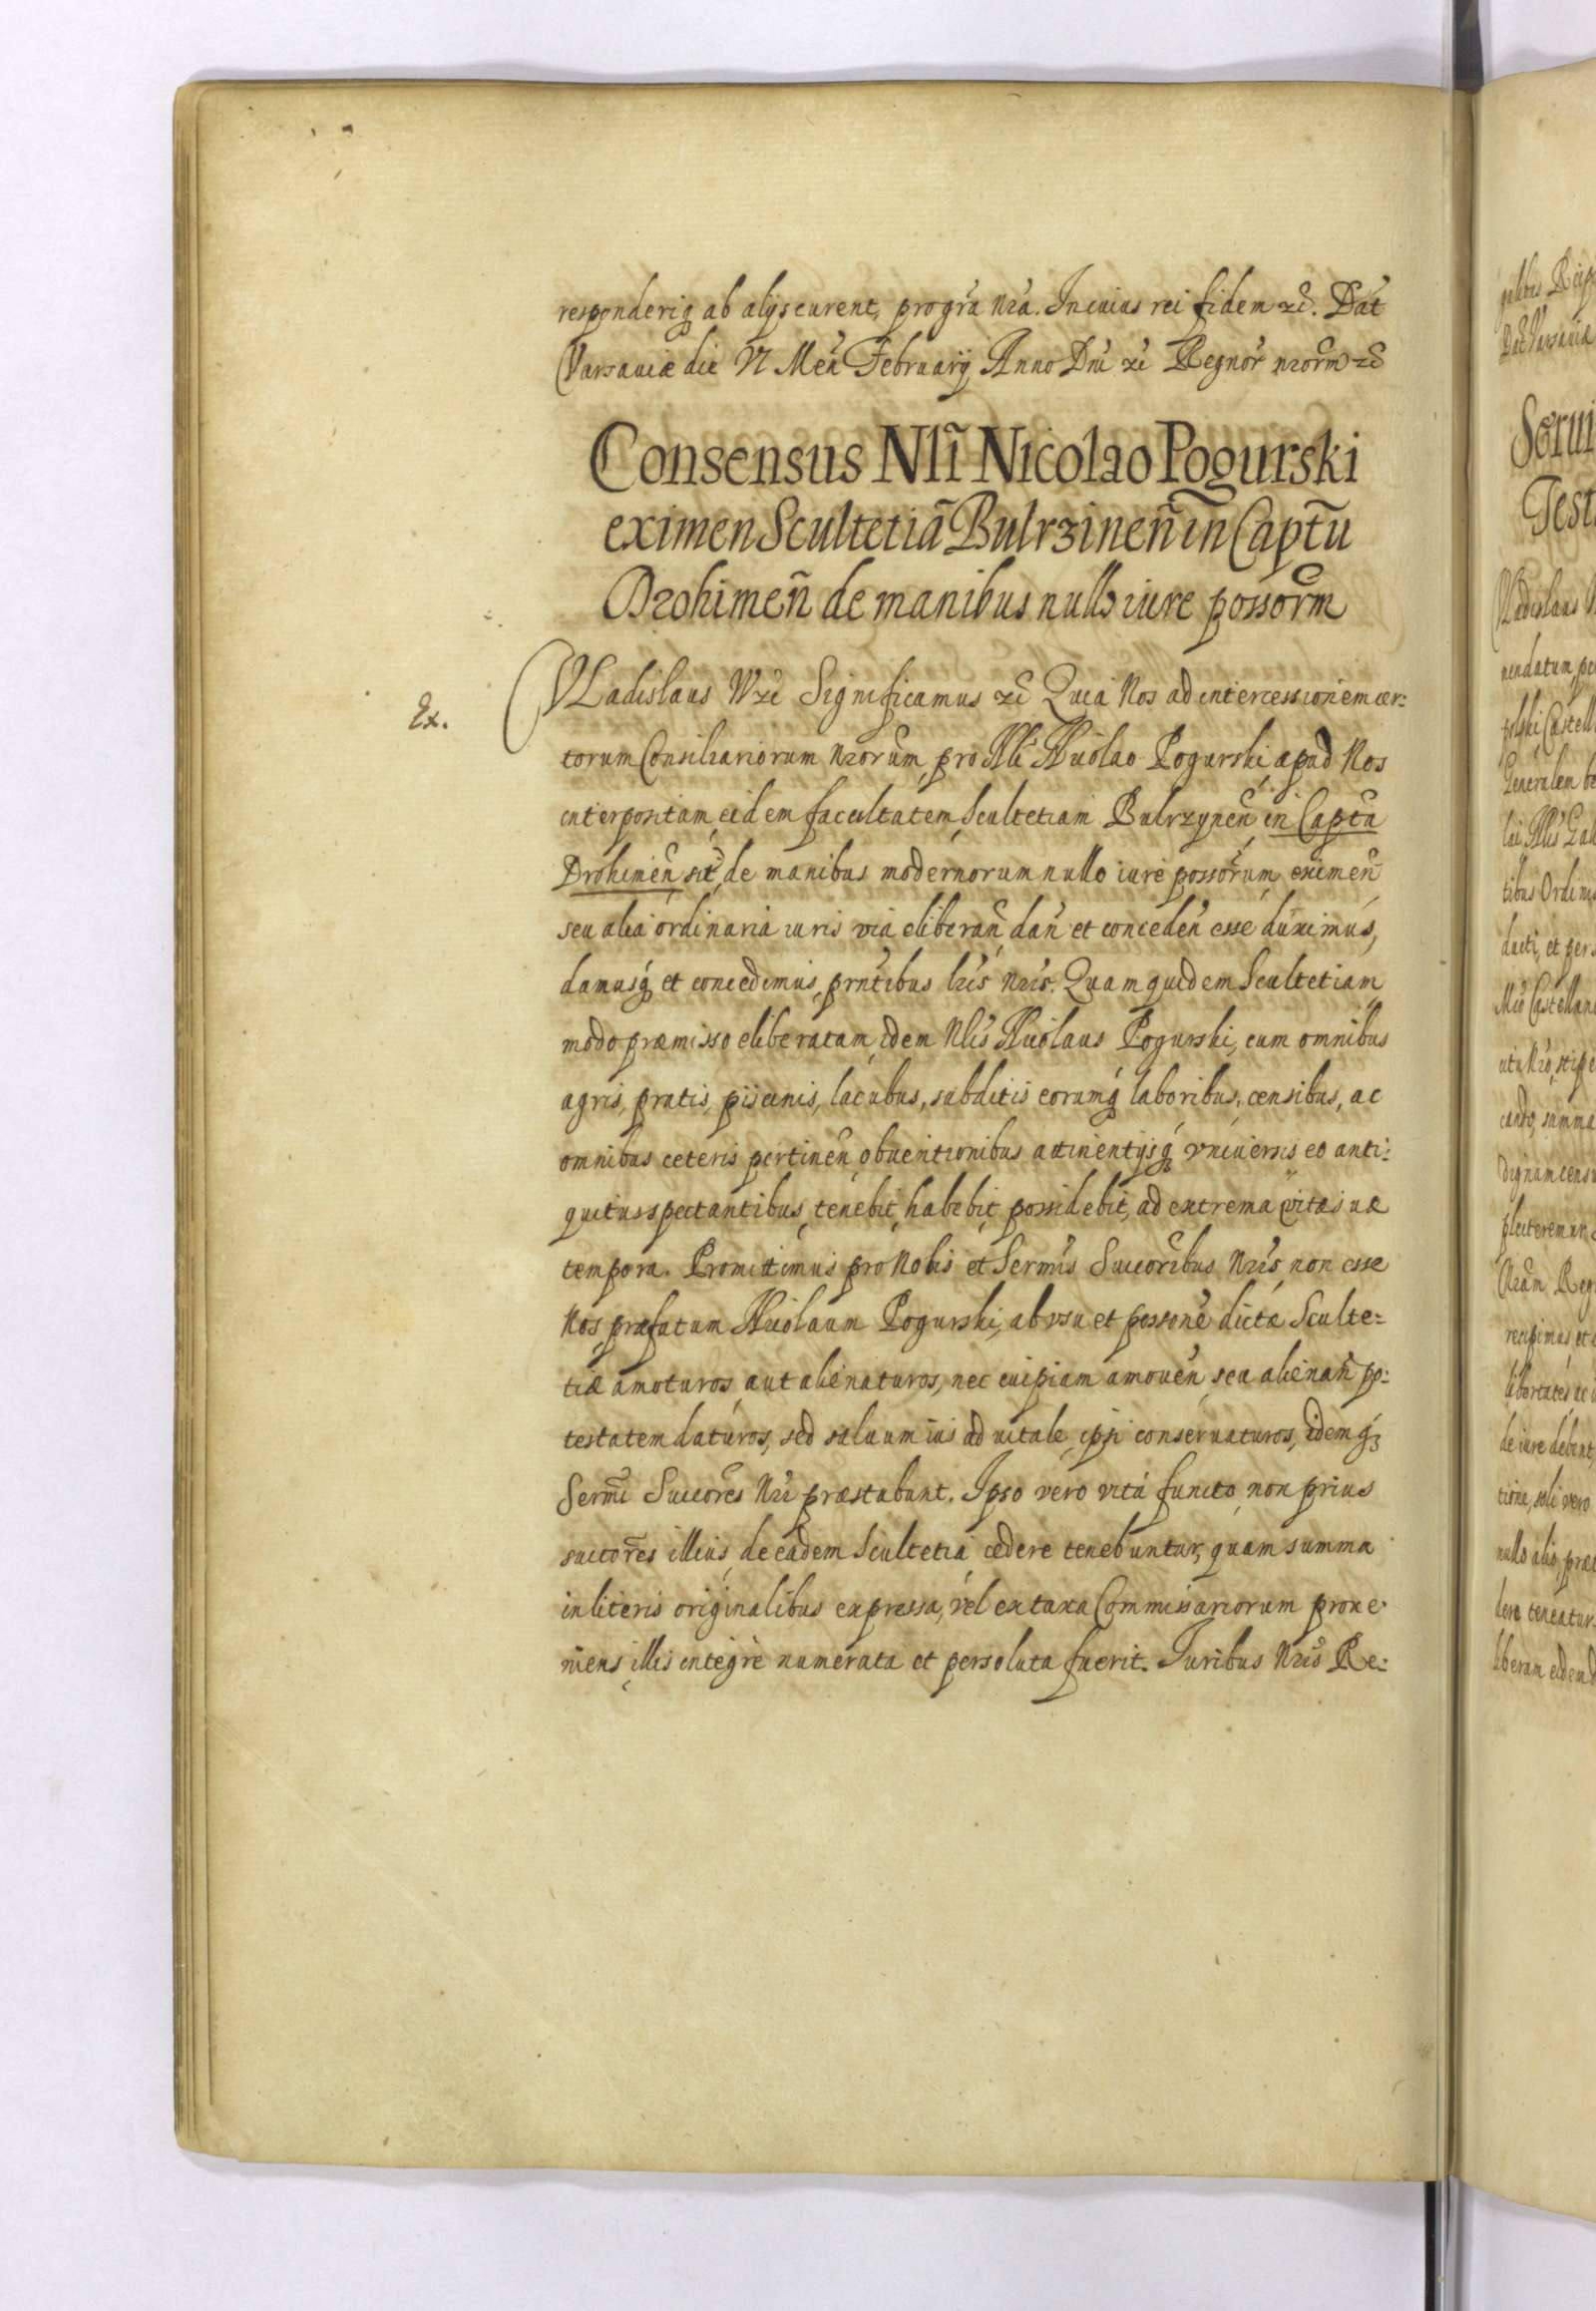 responderiq ab alijs curent, pro grã nrã. In cuius rei fidem etc̃. Dat̃
Varsauiæ die VI Meñ February Anno Dni etc̃ Regnor̃ nror̃m etc̃
Consensus Nli Nicolao Pogurski
eximen Scultetiã Bulrzineñ in Captũ
Drohimeñ de manibus nullo iure possor̃m
Ex.
VLadislaus IV etc̃ Significamus etc̃ Quia Nos ad intercessionem cer:
torum Consiliariorum nrorum, pro Nli Nicolao Pogurski, apud Nos
interpositam, eidem facultatem, Scultetiam Bulrzyneñ in Captũ
Drohimeñ sit̃, de manibus modernorum nullo iure possor̃um, eximeñ
seu alia ordinaria iuris via eliberañ dañ et concedeñ esse duximus,
damusq́ et concedimus, prñtibus lris nris. Quam quidem Scultetiam
modo præmisso eliberatam, idem Nlis Nicolaus Pogurski, cum omnibus
agris, pratis, piscinis, lacubus, subditis eorumq́ laboribus, censibus, ac
omnibus ceteris pertineñ obuentionibus attinentijsq́ vniuersis eo anti:
quitus spectantibus, tenebit, habebit, possidebit, ad extrema vitæ suæ
tempora. Promittimus pro Nobis et Sermis Succoribus Nris, non esse
Nos, præfatum Nicolaum Pogurski, ab vsu et possone dictæ Sculte:
tiæ amoturos, aut alienaturos, nec cuipiam amoueñ seu alienañ po:
testatem daturos, sed saluum ius aduitale, ipsi conseruaturos, idemq́
Sermi Succores Nri præstabunt. Ipso vero vitá functo, non prius
succores illius, de eadem Scultetia cedere tenebuntur, quam summa
in literis originalibus expressa, vel ex taxa Commissariorum proue:
niens, illis integrè numerata et persoluta fuerit. Iuribus Nris Re: